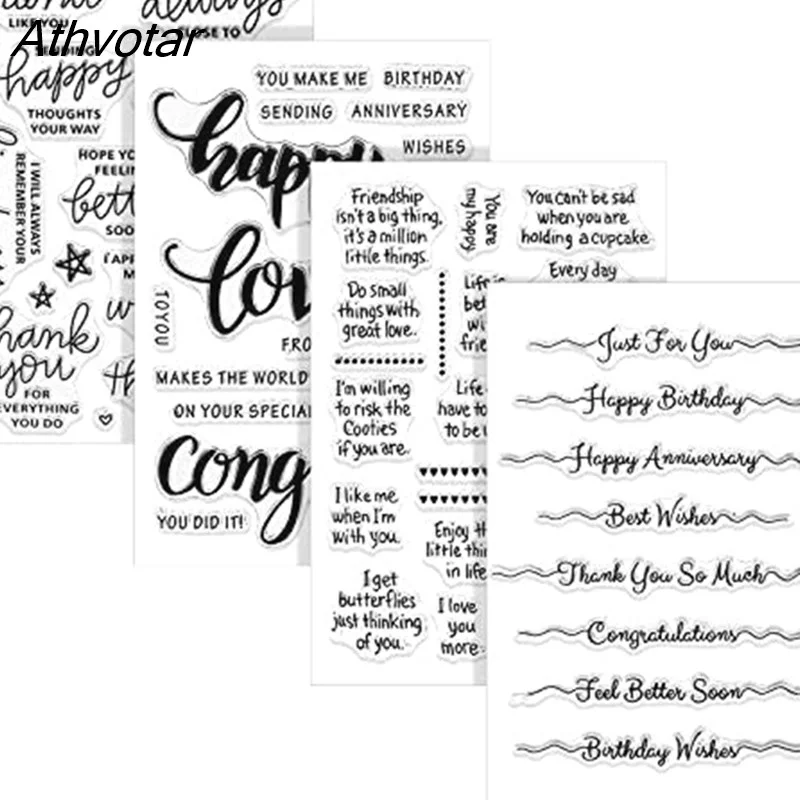 Athvotar
LIKE YOU
always
CLOSE TO
SENDING
happy
THOUGHTS
YOUR WAY
I WILL ALWAYS
REMEMBER YOUR
HOPE YO
FEELIN
bett
SOO
thank
you
FOR
EVERYTHING
YOU DO
YOU MAKE ME
BIRTHDAY
SENDING
ANNIVERSARY
WISHES
happy
lov
TO YOU
FRO
MAKES THE WORLD
ON YOUR SPECIA
Cong
YOU DID IT!
Friendship
isn't a big thing,
it's a million
little things.
You are
my happy
You can't be sad
when you are
holding a cupcake.
Every day
Do small
things with
great love.
Life is
bet
wi
frie
I'm willing
to risk the
Cooties
if you are.
Life
have to
to be
I like me
when I'm
with you.
Enjoy th
little thin
in life
I get
butterflies
just thinking
of you.
I love
you
more.
Just For You
Happy Birthday
Happy Anniversary
Best Wishes
Thank You So Much
Congratulations
Feel Better Soon
Birthday Wishes